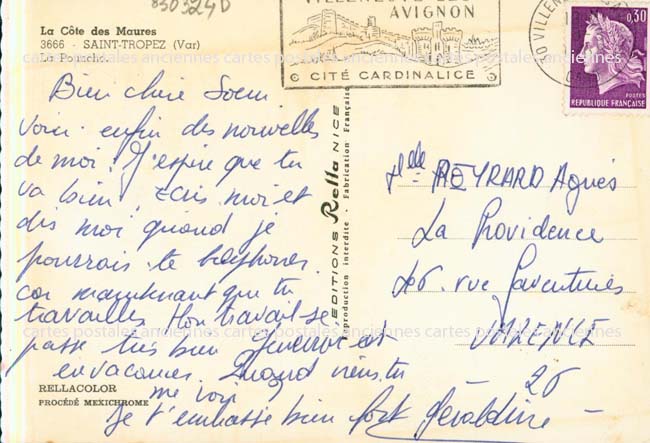 830324D
La Côte des Maures
3666 - SAINT-TROPEZ (Var)
La Ponche.
VILLENEUVE-LES-
AVIGNON
CITÉ CARDINALICE
30 VILLENEUVE
0,30
POSTES
REPUBLIQUE FRANÇAISE
Bien chère Soeur
voici enfin des nouvelles
de moi. J'espère que tu
va bien. écris moi et
dis moi quand je
pourrais te téléphoner
car maintenant que tu
travailles Mon travail se
passe très bien est
en vacances. Quand viens tu
me voir
Je t'embrasse bien fort Géraldine
EDITIONS Rella NICE
Reproduction interdite - Fabrication Française
Melle REYRARD Agnès
La Providence
rue
VALENCE
26
RELLACOLOR
PROCÉDÉ MEXICHROME
cartes postales anciennes cartes postales anciennes cartes postales anciennes
cartes postales anciennes cartes postales anciennes cartes postales anciennes